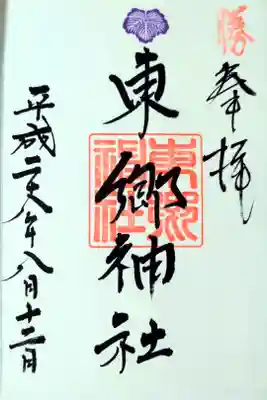 勝
奉拝
東郷神社
東郷神社
平成二十八年八月十三日